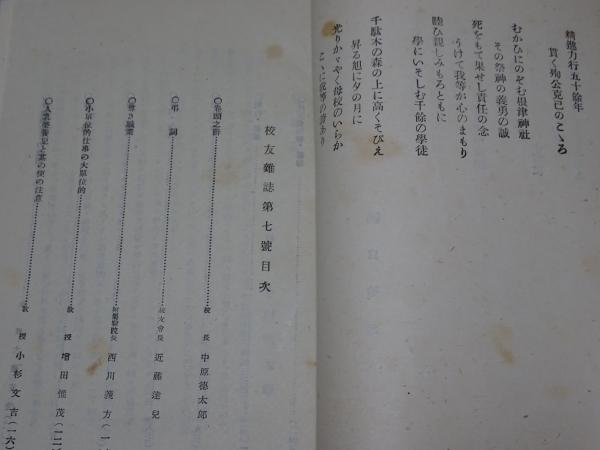 精進力行五十餘年
貫く殉公克己のこゝろ
むかひにのぞむ根津神社
その祭神の義勇の誠
死をもて果せし責任の念
うけて我等が心のまもり
睦び親しみもろともに
學にいそしむ千餘の學徒
千駄木の森の上に高くそびえ
昇る旭に夕の月に
光りかゞやく母校のいらか
こゝに我等の譽あり
校友雜誌第七號目次
○卷頭之辭……校長 中原德太郎
○弔詞……校友會長 近藤達兒
……附屬醫院長 西川義方
○小單位的仕事の大單位的……教授 增田胤茂
……教授 小杉文吉(一六)